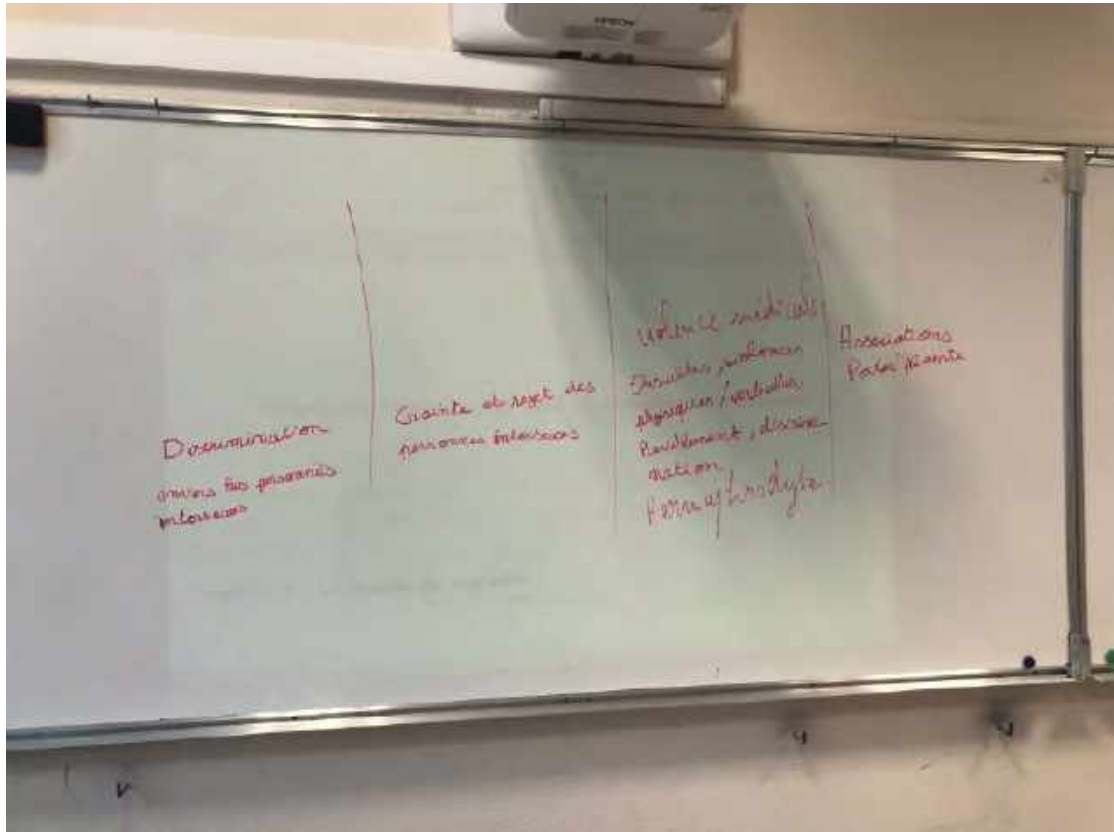 EPSON
Discrimination
envers les personnes
intersexes
Crainte et rejet des
personnes intersexes
violence médicale
Insultes, violences
physiques / verbales
Harcèlement, discrimi-
nation
Hermaphrodyte
Associations
Planning